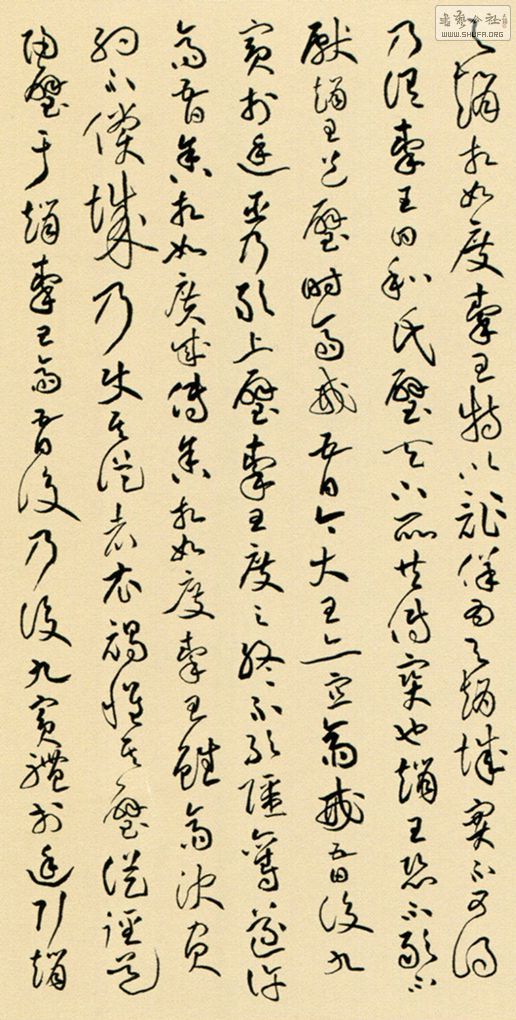 书艺公社
WWW.SHUFA.ORG
予趙相如度秦王特以詐佯為予趙城實不可得
乃謂秦王曰和氏璧天下所共傳寶也趙王恐不敢不
獻趙王送璧時齋戒五日今大王亦宜齋戒五日設九
賓於廷臣乃敢上璧秦王度之終不敢彊奪遂許
齋五日舍相如廣成傳舍相如度秦王雖齋決負
約不償城乃使其從者衣褐懷其璧從徑道
歸璧于趙秦王齋五日後乃設九賓禮於廷引趙